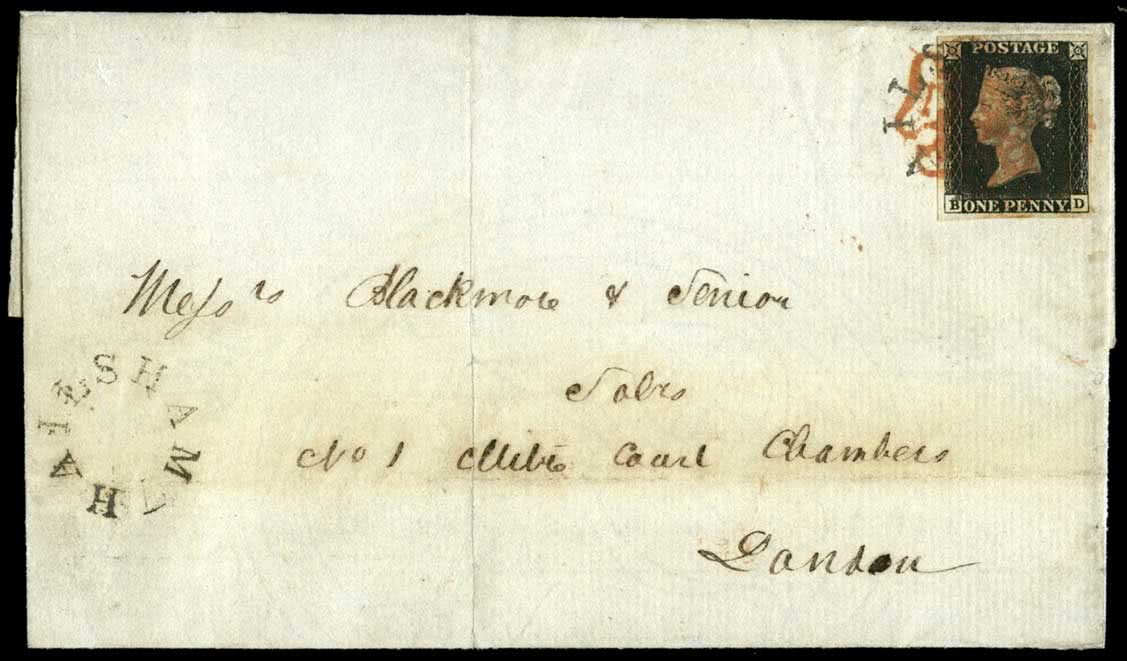 POSTAGE
B ONE PENNY D
AILS
Messrs Blackmore & Senior
Solrs
No 1 Mitre Court Chambers
London
HAILSHAM